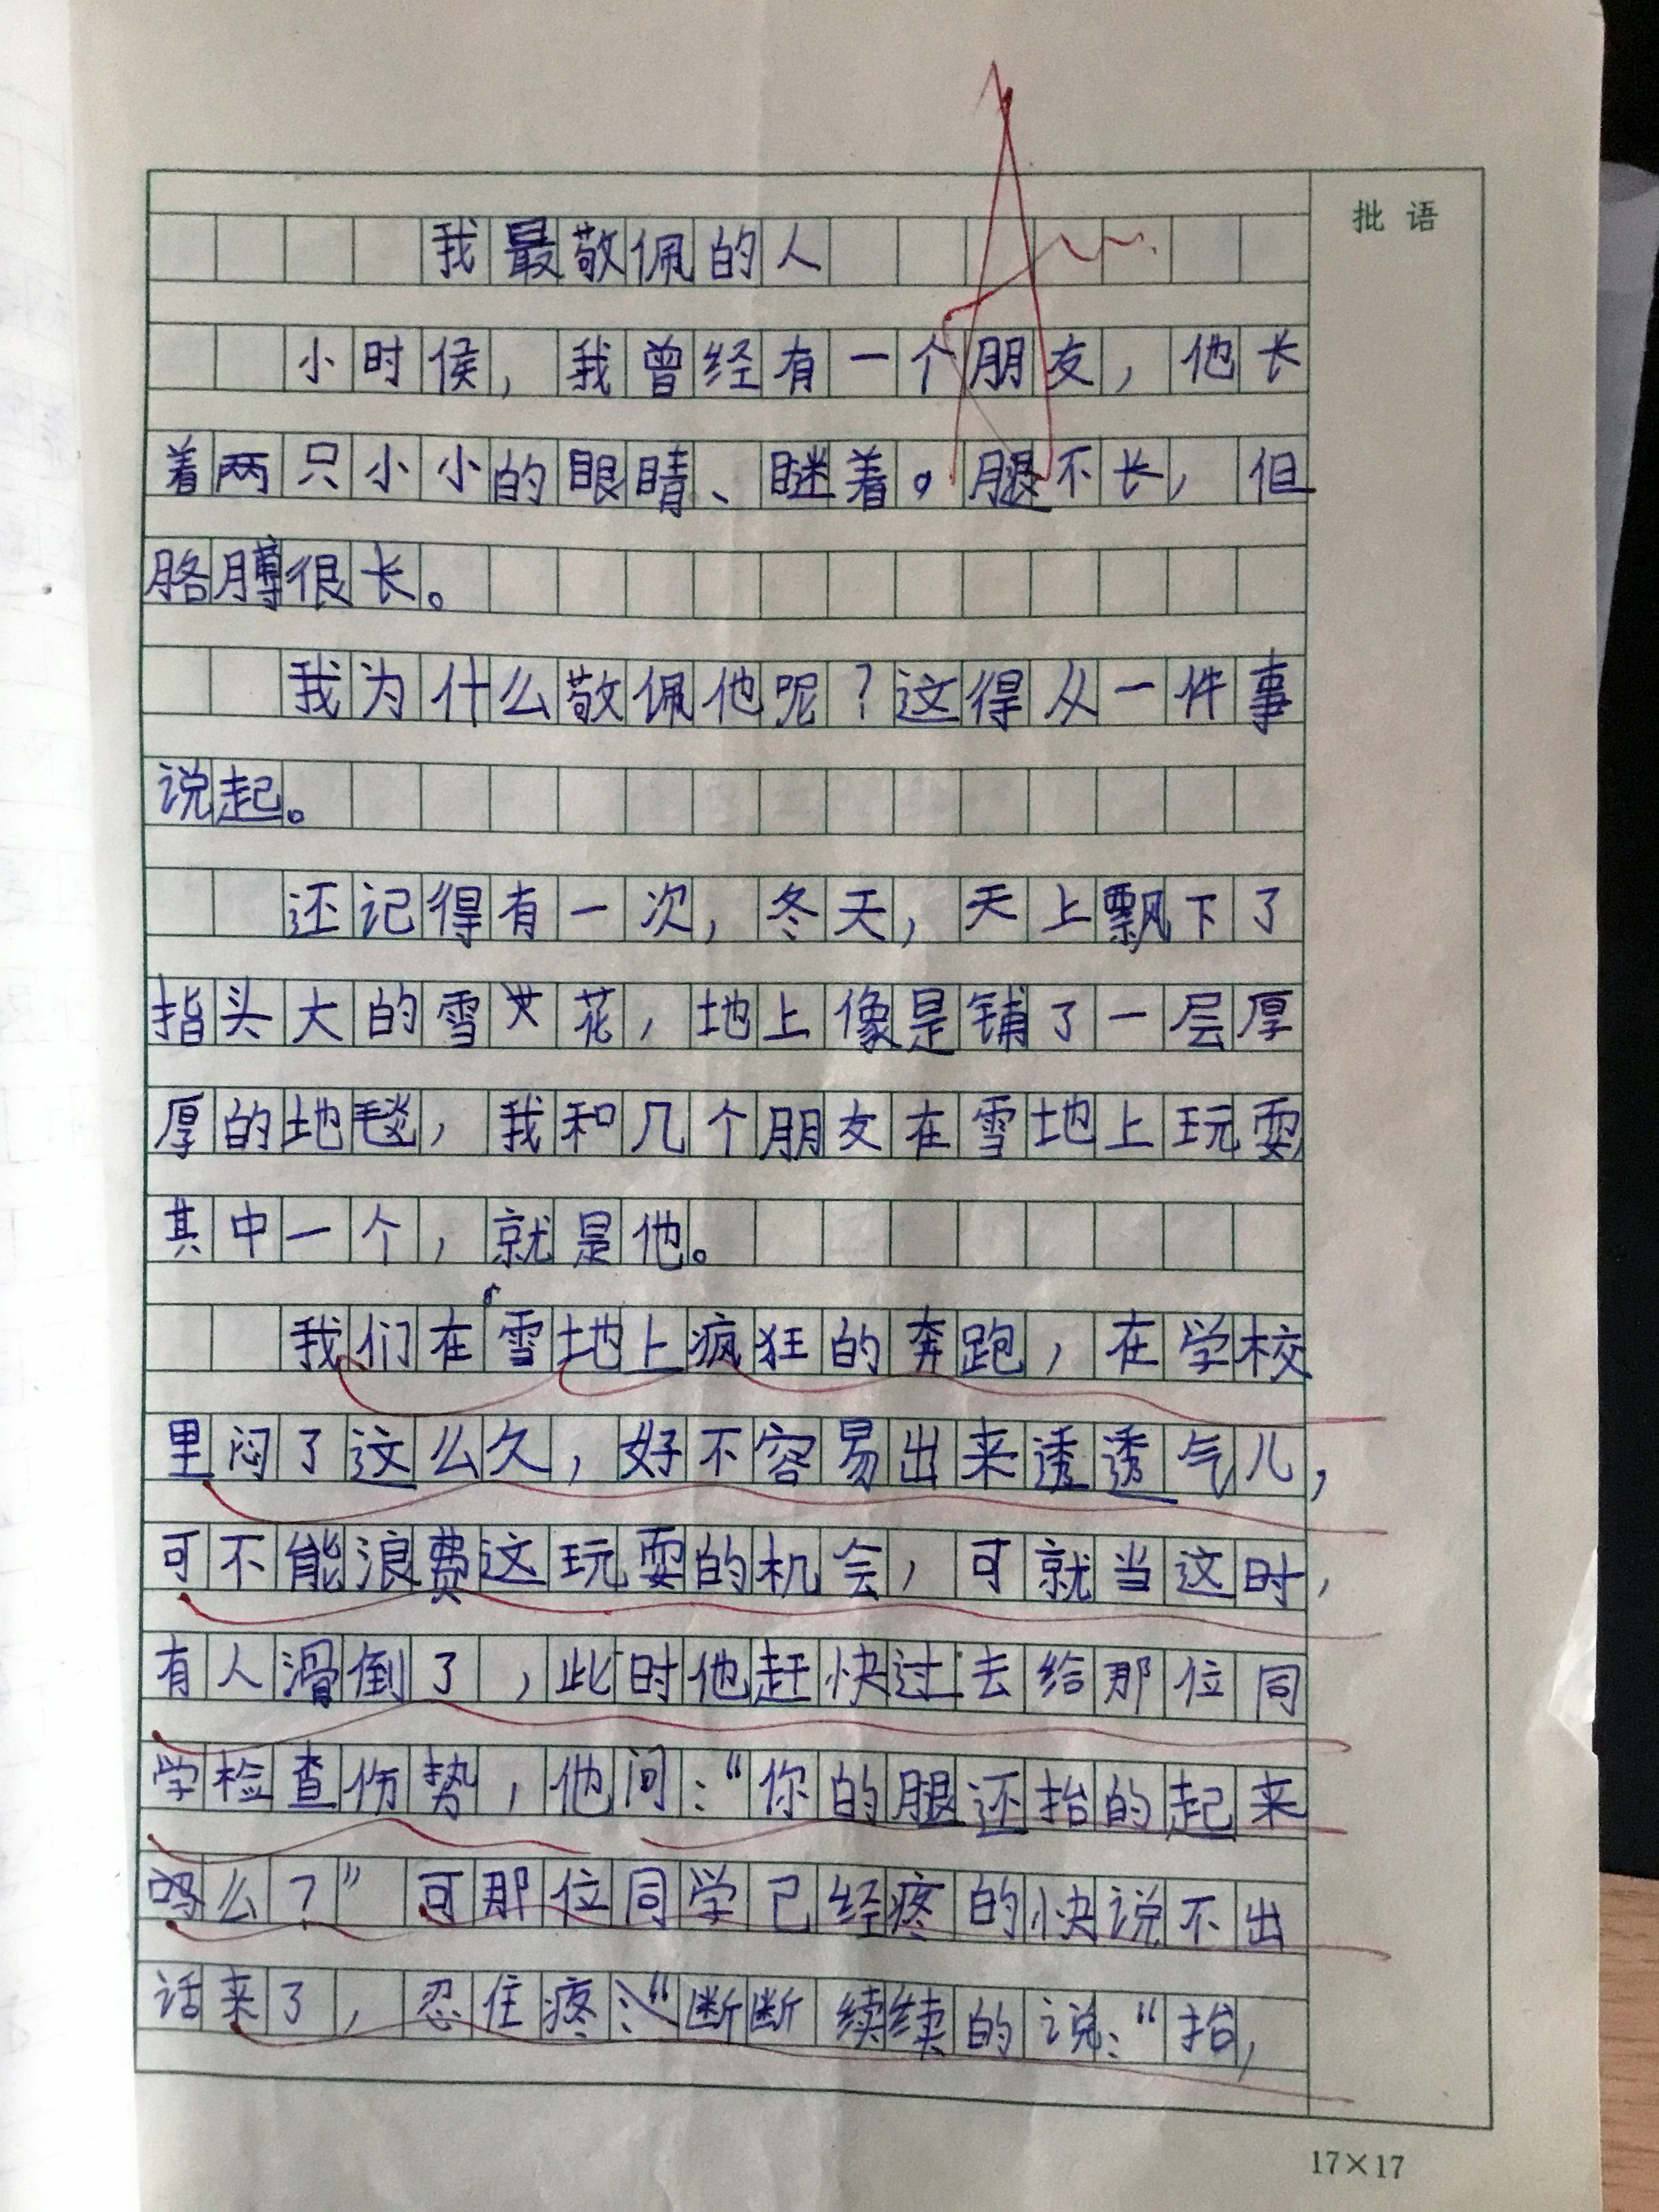 批语
我最敬佩的人
小时侯，我曾经有一个朋友，他长
着两只小小的眼睛、瞇着。腿不长，但
胳膊很长。
我为什么敬佩他呢？这得从一件事
说起。
还记得有一次，冬天，天上飘下了
指头大的雪花，地上像是铺了一层厚
厚的地毯，我和几个朋友在雪地上玩耍
其中一个，就是他。
我们在雪地上疯狂的奔跑，在学校
里闷了这么久，好不容易出来透透气儿，
可不能浪费这玩耍的机会，可就当这时，
有人滑倒了，此时他赶快过去给那位同
学检查伤势，他问：“你的腿还抬的起来
吗么？”可那位同学已经疼的快说不出
话来了，忍住疼：“断断续续的说：“抬，
17×17